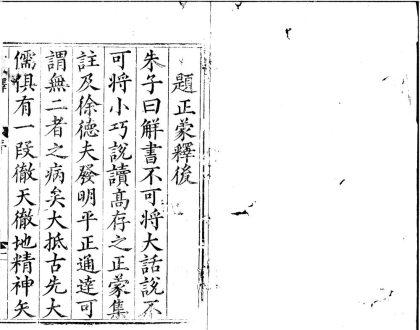 題正蒙釋後
朱子曰解書不可將大話說不
可將小巧說讀髙存之正蒙集
註及徐德夫發明平正通達可
謂無二者之病矣大抵古先大
儒俱有一段徹天徹地精神矢